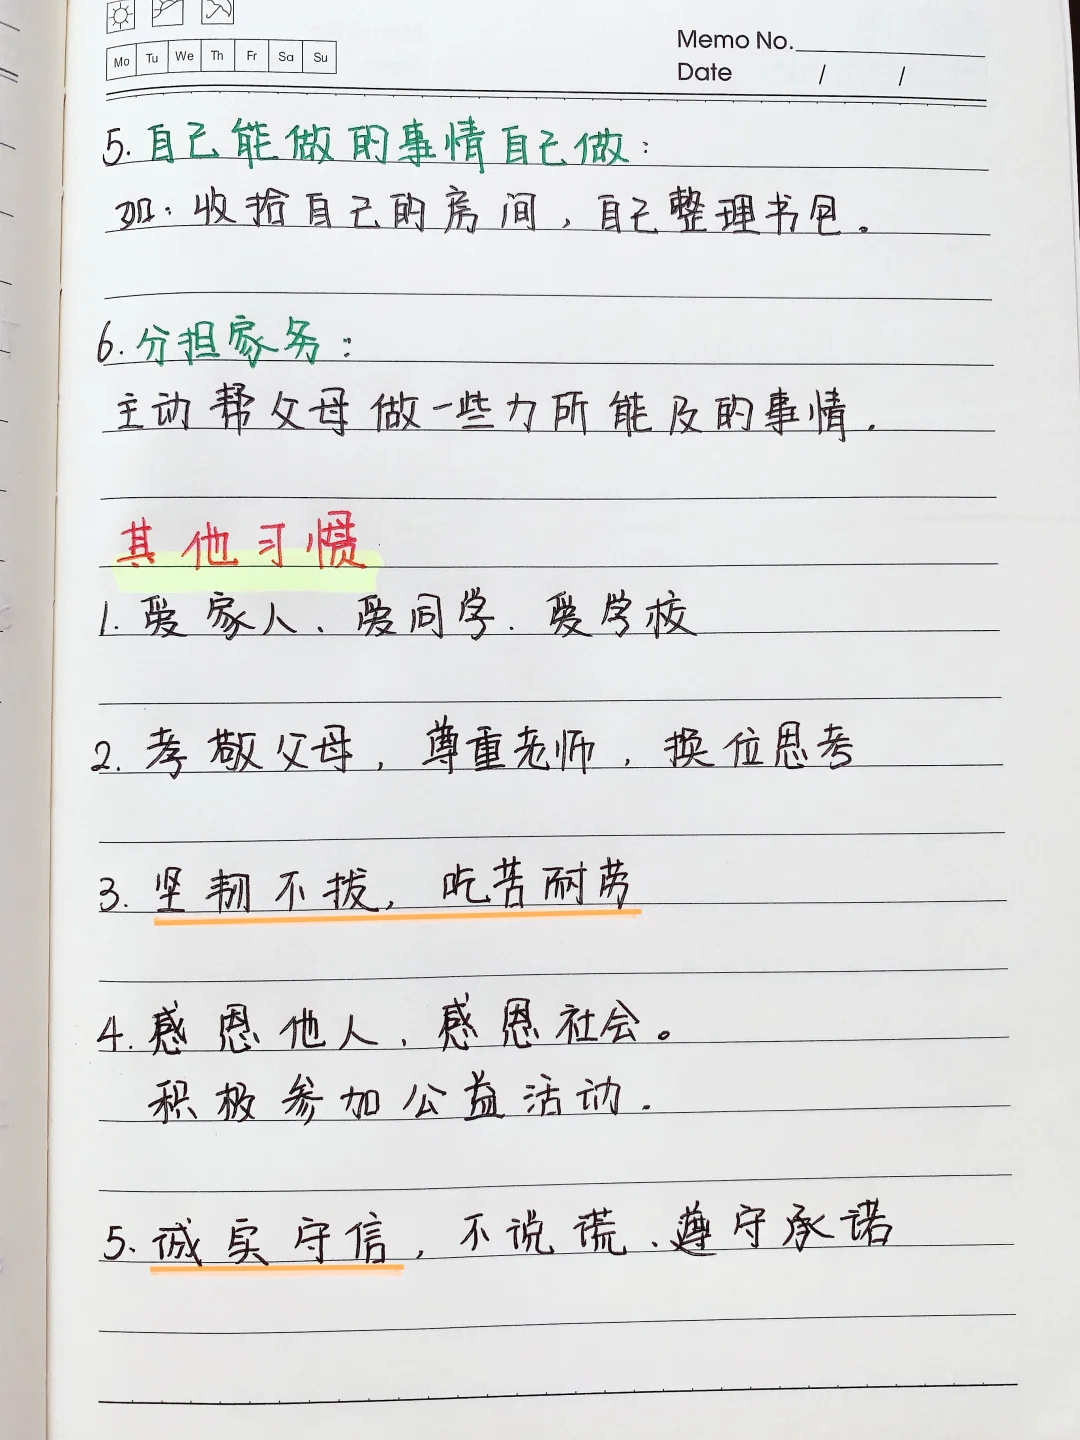 Mo Tu We Th Fr Sa Su
Memo No.
Date / /
5. 自己能做的事情自己做:
如: 收拾自己的房间, 自己整理书包。
6. 分担家务:
主动帮父母做一些力所能及的事情.
其他习惯
1. 爱家人、爱同学. 爱学校
2. 孝敬父母, 尊重老师, 换位思考
3. 坚韧不拔, 吃苦耐劳
4. 感恩他人, 感恩社会。
积极参加公益活动.
5. 诚实守信, 不说谎、遵守承诺